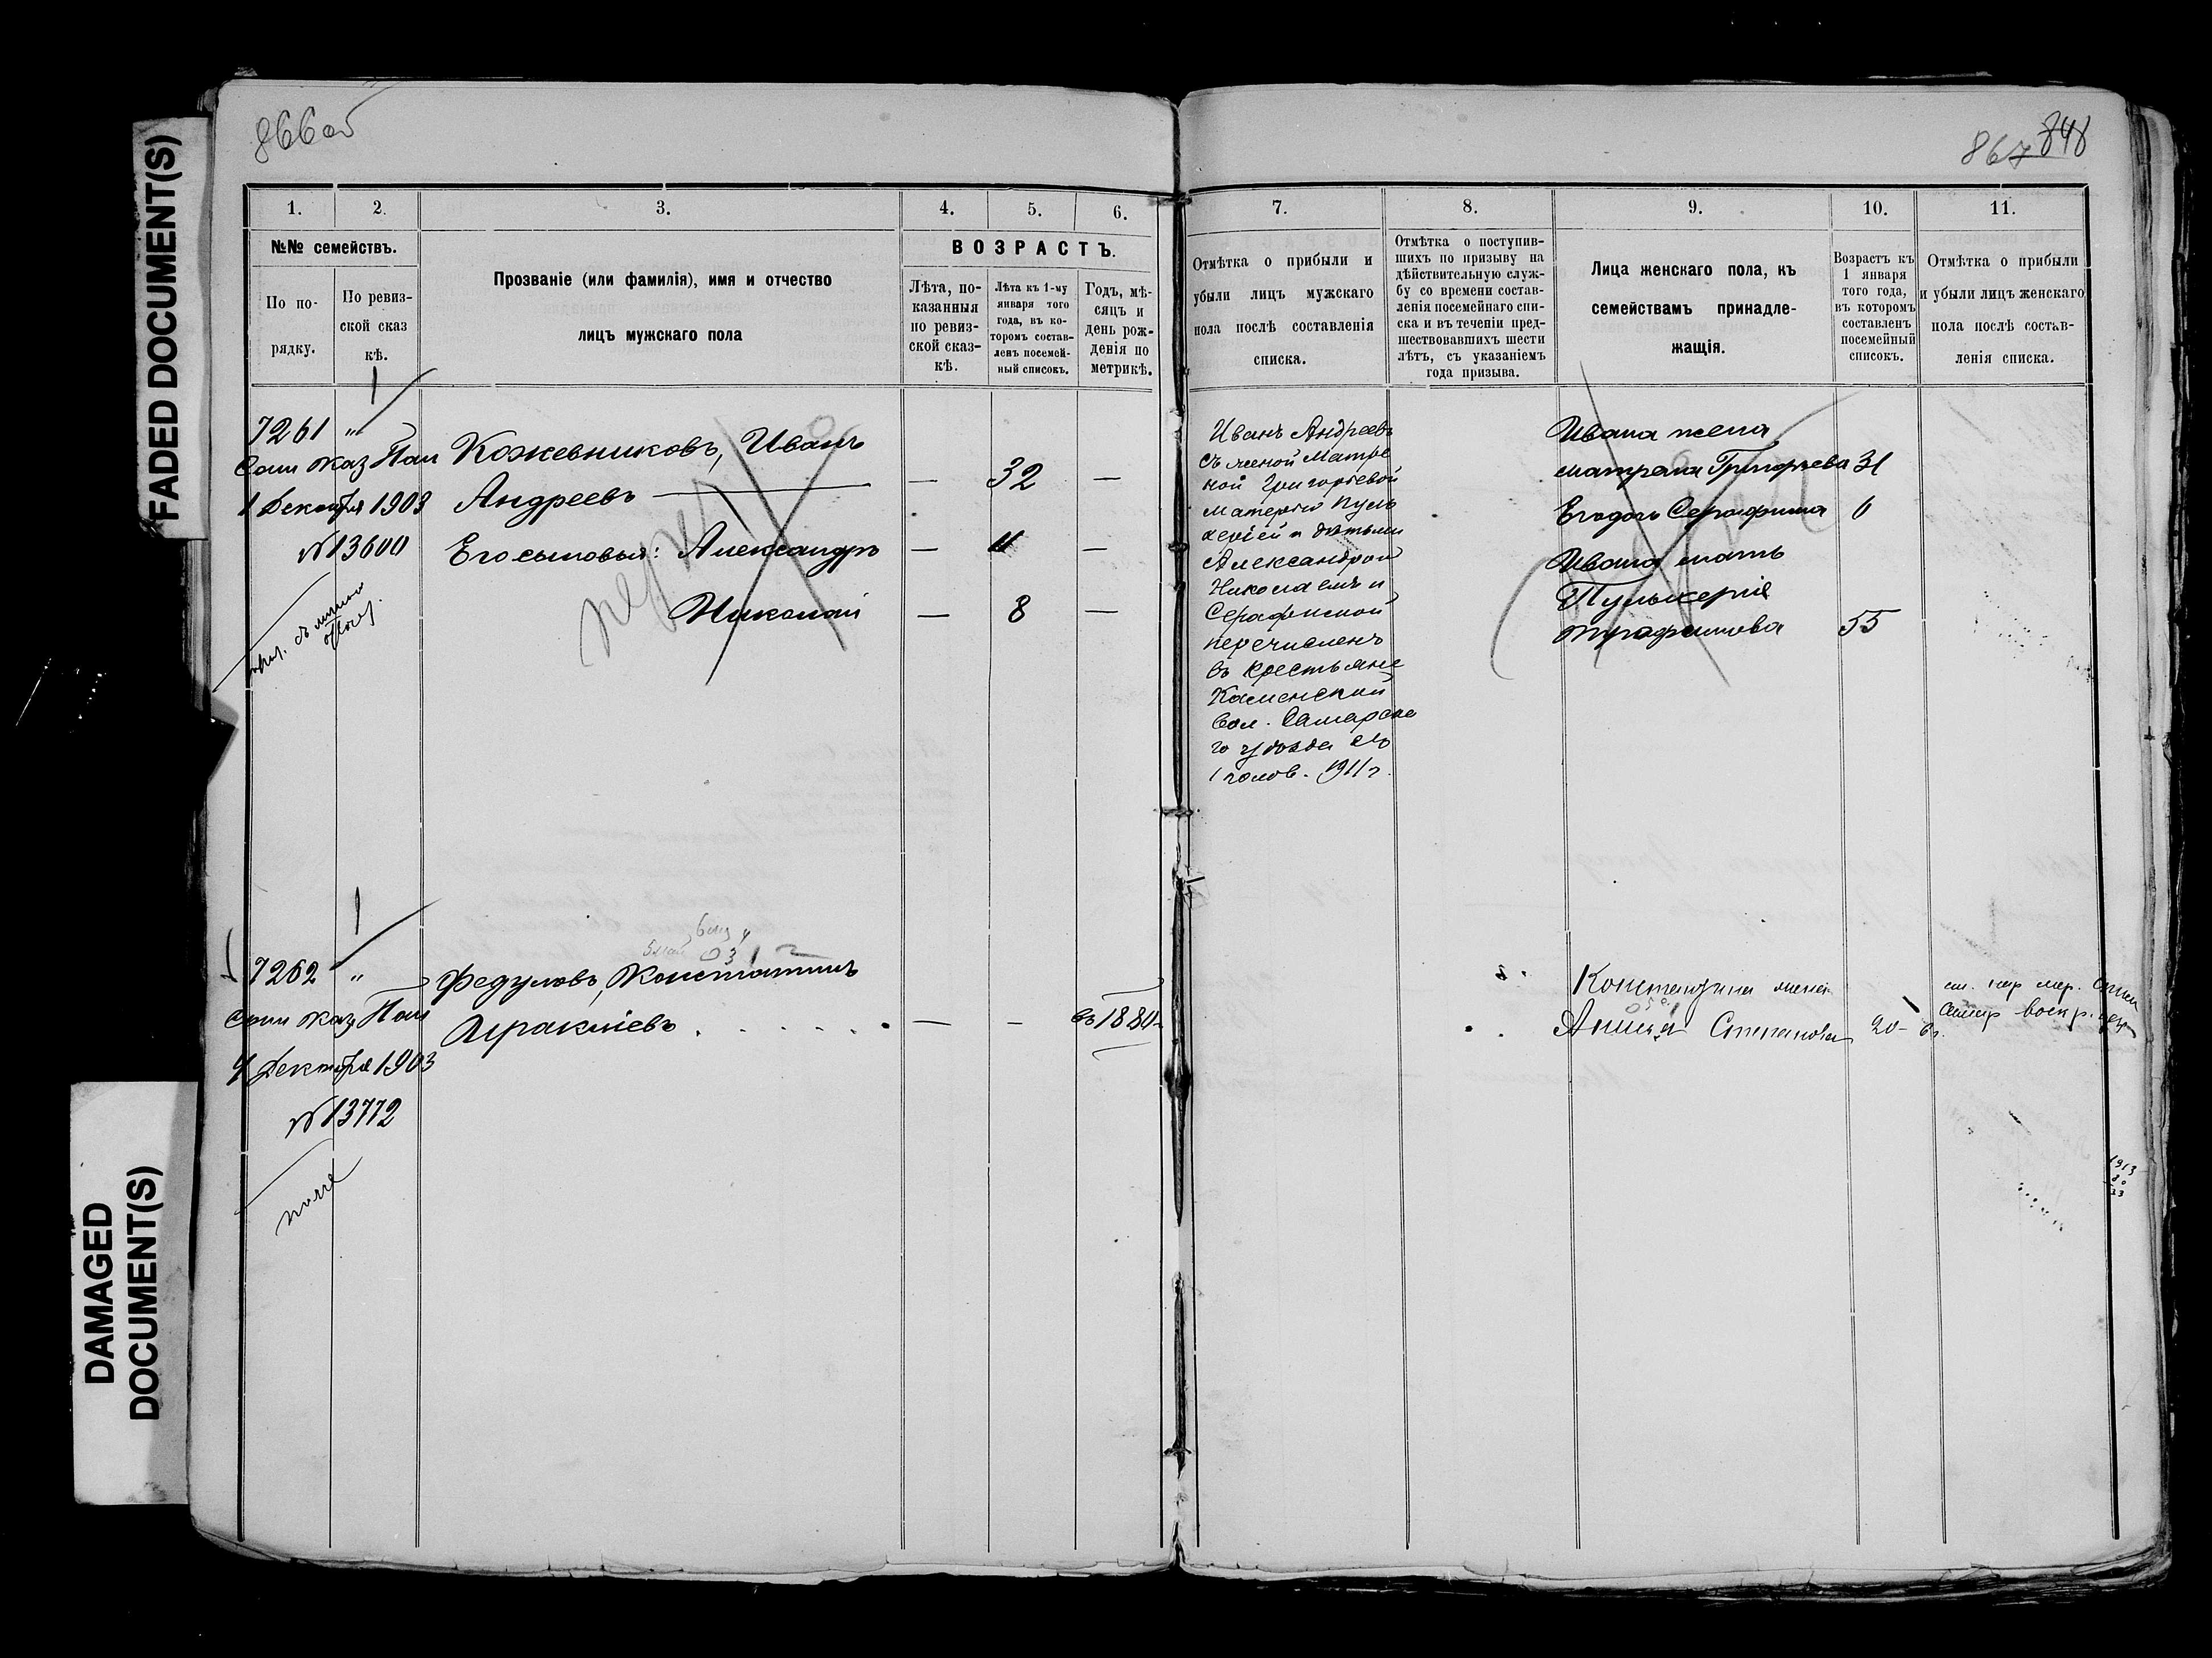 FADED DOCUMENT(S)
DAMAGED
DOCUMENT(S)
866об
1. 2. 3. 4. 5. 6.
№№ семействъ.
По по-
рядку.
По ревиз-
ской сказ
кѣ.
Прозваніе (или фамилія), имя и отчество
лицъ мужскаго пола
ВОЗРАСТЪ.
Лѣта, по-
казанныя
по ревиз-
ской сказ-
кѣ.
Лѣта къ 1-му
января того
года, въ ко-
торомъ состав-
ленъ посемей-
ный списокъ.
Годъ, мѣ-
сяцъ и
день рож-
денія по
метрикѣ.
1
7261 "
Каз Пал
1 Декабря 1903
№ 13600
Кожевниковъ, Иванъ
Андреевъ — 32 —
Его сыновья: Александръ — 11 —
Николай — 8 —
1
7262 "
Каз Пал
4 Декабря 1903
№ 13772
Федуловъ, Константинъ
Ираклiевъ — - въ 1880
867 848
7. 8. 9. 10. 11.
Отмѣтка о прибыли и
убыли лицъ мужскаго
пола послѣ составленія
списка.
Отмѣтка о поступив-
шихъ по призыву на
дѣйствительную служ-
бу со времени состав-
ленія посемейнаго спи-
ска и въ теченіи пред-
шествовавшихъ шести
лѣтъ, съ указаніемъ
года призыва.
Лица женскаго пола, къ
семействамъ принадле-
жащія.
Возрастъ къ
1 января
того года,
въ которомъ
составленъ
посемейный
списокъ.
Отмѣтка о прибыли
и убыли лицъ женскаго
пола послѣ состав-
ленія списка.
Иванъ Андреевъ
съ женой Матре
ной Григорьевой
матерью Пуль
херіей и дѣтьми
Александром
Николаемъ и
Серафимой
перечисленъ
въ крестьяне
Каменской
вол. Самарска
го уѣзда со
1 полов. 1911 г.
Ивана жена
Матрена Григорьева 31
Его дочь Серафима 6
Ивана мать
Пульхерія
Трофимова 55
Константина жена
Анисья Степанова 20
1913
80
33